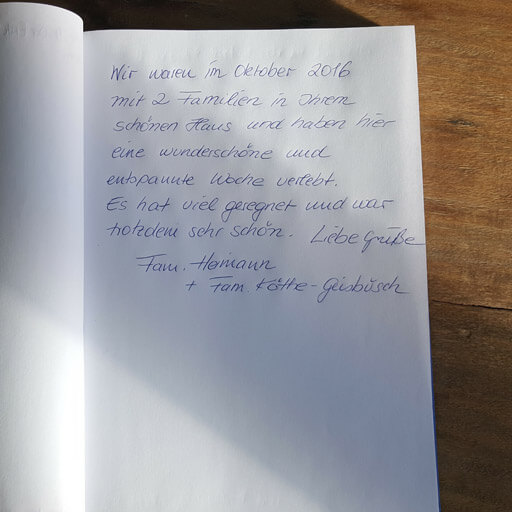 Wir waren im Oktober 2016
mit 2 Familien in Ihrem
schönen Haus und haben hier
eine wunderschöne und
entspannte Woche verlebt.
Es hat viel geregnet und war
trotzdem sehr schön. Liebe Grüße
Fam. Heimann
+ Fam. Köthe-Geisbüsch